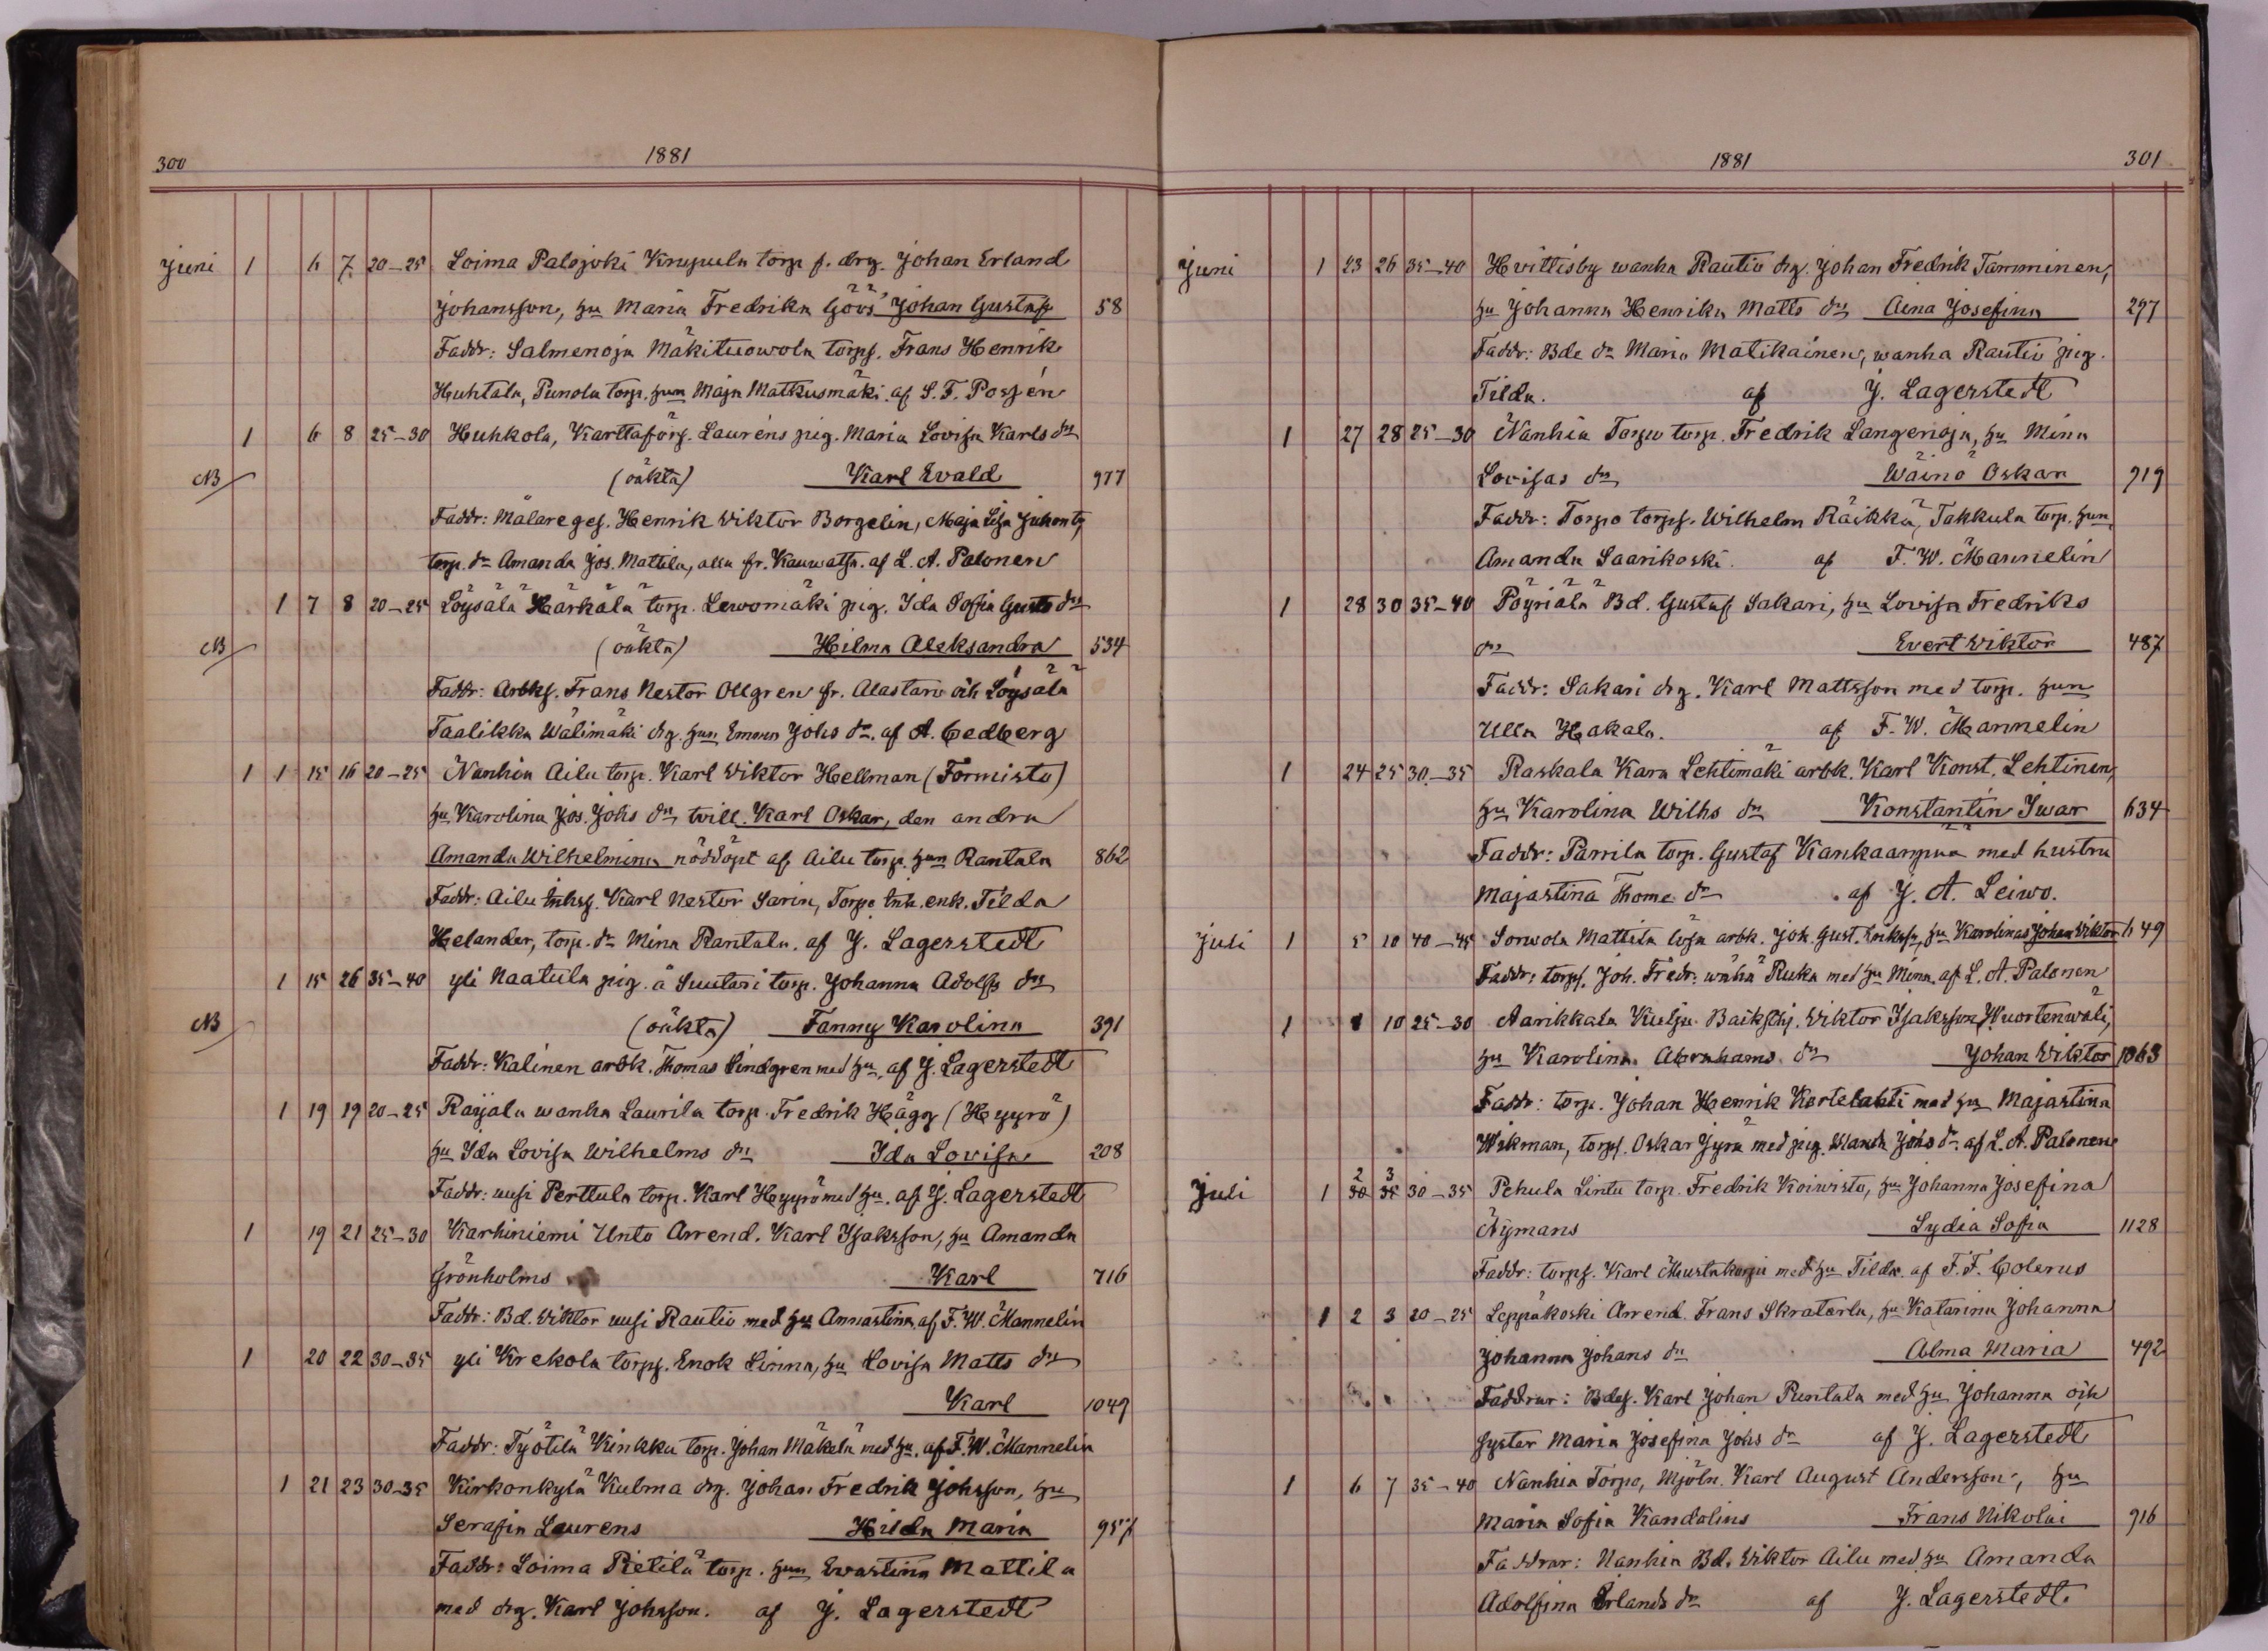 300
1881
Juni 1 6 7 20-25 Loima Palojoki Knupula torp. s. drg. Johan Erland
Johansson, hu Maria Fredrika Göös Johan Gustaf 58
Faddr: Salmenoja Mäkituowola torps. Frans Henrik
Huhtala, Punola torp. hun Maja Matkusmäki. af S. F.
1 6 8 25-30 Huhkola, Lauréns pig. Maria Lovisa Karls dr
NB (oäkta) Karl Evald 977
Faddr: Målareges. Henrik Viktor Borgelin, Maja Lisa
torp. dr Amanda Jos. Mattila, alla fr. Kauwatsa. af L. A. Palonen
1 7 8 20-25 Löysälä Härkälä torp. Lewomäki pig. Ida Sofia Gusts dr
NB (oäkta) Hilma Aleksandra 534
Faddr: Arbks. Frans Nestor Ollgren fr. Alastaro och Löysälä
Taalikka Wälimäki drg. hun Emma Johs dr. af A. Cedberg
1 1 15 16 20-25 Nanhia Ailu torp. Karl Viktor Hellman (Formisto)
hu Karolina Jos. Johs dr, twill. Karl Oskar, den andra
Amanda Wilhelmina nöddöpt af Ailu torp. hun Rantala 862
Faddr: Ailu inhsg. Karl Nestor Sarin, Torpo inh. enk. Tilda
Helander, torp. dr Mina Rantala. af J. Lagerstedt
1 15 26 35-40 yli Naatula pig. å Suutari torp. Johanna Adolfs dr
NB (oäkta) Fanny Karolina 391
Faddr: Kalinen arbk. Thomas Lindgren med hu. af J. Lagerstedt
1 19 19 20-25 Raijala wanha Laurila torp. Fredrik Hägg (Hyyrö)
hu Ida Lovisa Wilhelms dr Ida Lovisa 208
Faddr: uusi Perttula torp. Karl Hyyrö med hu. af J. Lagerstedt
1 19 21 25-30 Karhiniemi Unto Arrend. Karl Isaksson, hu Amanda
Grönholms Karl 716
Faddr: Bd. Viktor uusi Rautio med hu Annastina. af F. W. Mannelin
1 20 22 30-35 yli Krekola torps. Enok Linna, hu Lovisa Matts dr
Karl 1049
Faddr: Työtilä Kinkka torp. Johan Mäkelä med hu. af F. W. Mannelin
1 21 23 30-35 Kirkonkylä Kulma drg. Johan Fredrik Johsson, hu
Serafia Laurens Hilda Maria 957
Faddr: Loima Pietilä torp. hun Evastina Mattila
med drg. Karl Johsson. af J. Lagerstedt
1881
301
Juni 1 23 26 35-40 Hvittisby wanha Rautio drg. Johan Fredrik Tamminen,
hu Johanna Henrika Matts dr Aina Josefina 297
Faddr: Bde dr Maria Matikainen, wanha Rautio pig.
Tilda. af J. Lagerstedt
1 27 28 25-30 Nanhia Torpo torp. Fredrik Langenoja, hu Mina
Lovisas dr Wäinö Oskar 919
Faddr: Torpo torps. Wilhelm Räikkä, Takkula torp. hun
Amanda Saarikoski. af F. W. Mannelin
1 28 30 35-40 Pöyriälä Bd. Gustaf Sakari, hu Lovisa Fredriks
dr Evert Viktor 487
Faddr: Sakari drg. Karl Mattsson med torp. hun
Ulla Hakala. af F. W. Mannelin
1 24 25 30-35 Raskala Kara Lehtimäki arbk. Karl Konst. Lehtinen,
hu Karolina Wilhs dr Konstantin Iwar 634
Faddr: Parrila torp. Gustaf Kankaanpää med hustru
Majastina Thome dr af J. A. Leiwo.
Juli 1 5 10 40-45 Sorwola Mattila lösa arbk. Joh. Gust. Erikss, hu Karolinas Johan Viktor 1149
Faddr: torps. Joh. Fredr. wähä Ruka med hu Mina. af L. A. Palonen
1 10 25-30 Aarikkala Viktor Isaksson Wuortenwäli,
hu Karolina Abrahams dr Johan Viktor 1063
Faddr: torp. Johan Henrik Kortelahti med hu Majastina
Wikman, torps. Oskar Jyrä med pig. Wanda Johs dr. af L. A. Palonen
Juli 1 2 3 30-35 Pehula Lintu torp. Fredrik Koivisto, hu Johanna Josefina
Nymans Lydia Sofia 1128
Faddr: torps. Karl Mustakorpi med hu Tilda. af F. F. Colerus
1 2 3 20-25 Leppäkoski Arrend. Frans Skratarla, hu Katarina Johanna
Johanna Johans dr Alma Maria 492
Faddrar: Bdes. Karl Johan Puntala med hu Johanna och
syster Maria Josefina Johs dr af J. Lagerstedt
1 6 7 35-40 Nanhia Torpo, Mjöln. Karl August Andersson, hu
Maria Sofia Kandolins Frans Nikolai 916
Faddrar: Nanhia Bd. Viktor Ailu med hu Amanda
Adolfina Erlands dr af J. Lagerstedt.